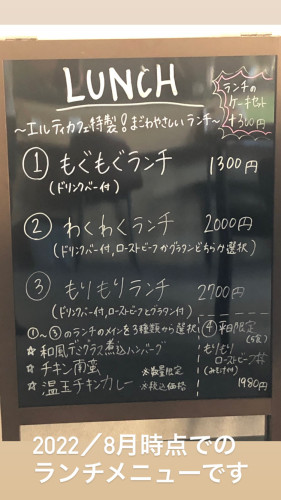 LUNCH
ランチの
ケーキセット
+300円
〜エルティカフェ特製!まごわやさしいランチ〜
① もぐもぐランチ 1300円
(ドリンクバー付)
② わくわくランチ 2000円
(ドリンクバー付,ローストビーフかグラタンどちらか選択)
③ もりもりランチ 2700円
(ドリンクバー付,ローストビーフとグラタン付)
①〜③のランチのメインを3種類から選択
☆ 和風デミグラス煮込ハンバーグ
☆ チキン南蛮 ※数量限定
☆ 温玉チキンカレー ※税込価格
④ 平日限定
(5食)
もりもり
ローストビーフ丼
(みそ汁付)
1980円
2022/8月時点での
ランチメニューです